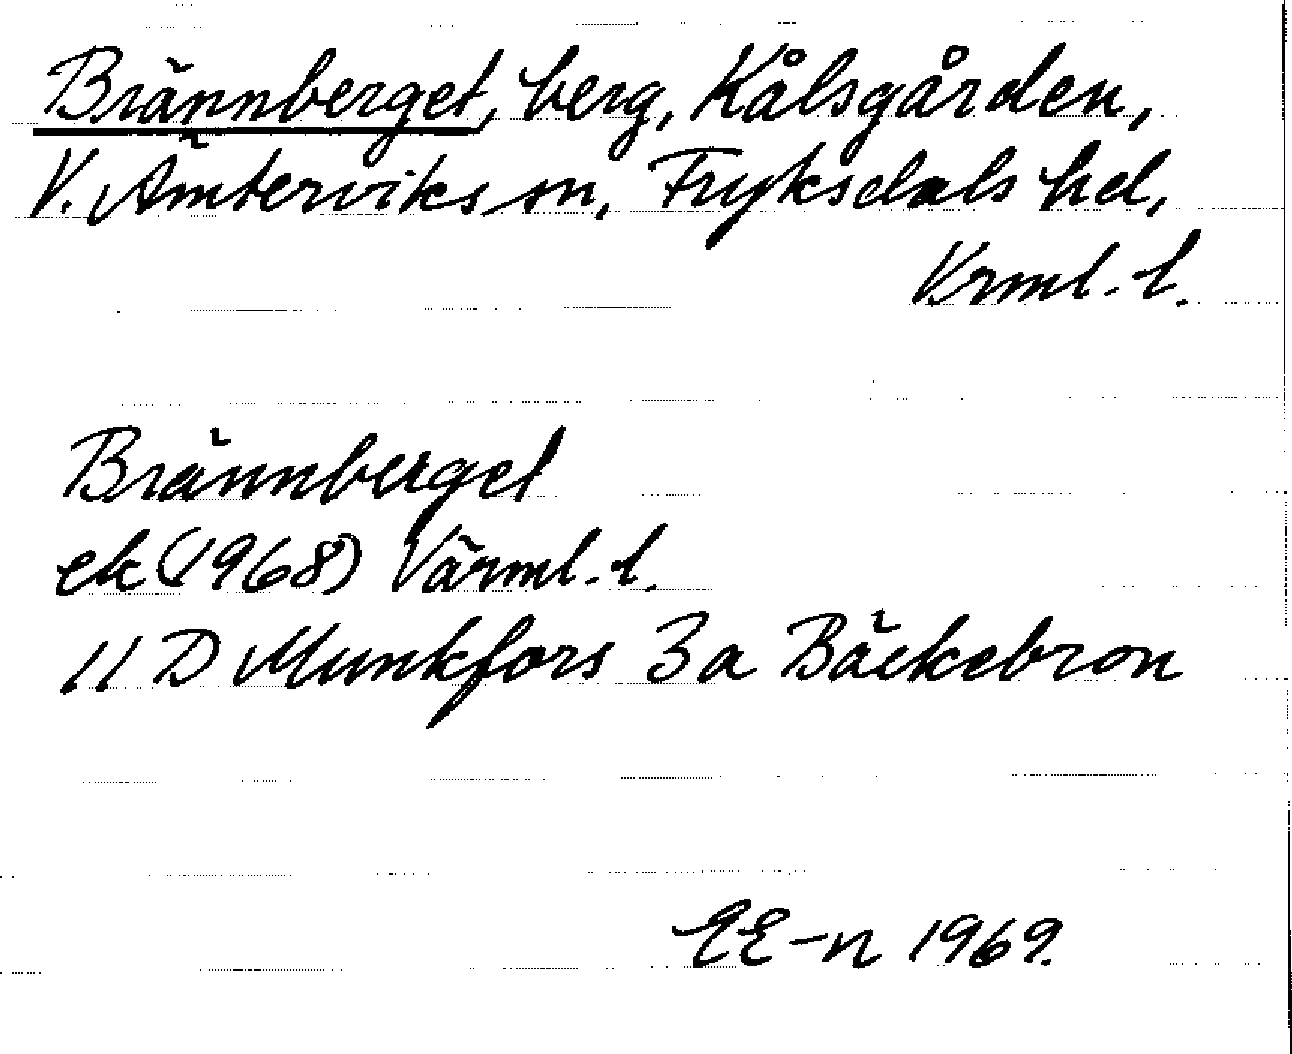 Brännberget, berg, Kålsgården,
V. Ämterviks sn, Fryksdals hd,
Vrml. l.
Brännberget
ek (1968) Värml. l.
11 D Munkfors 3a Bäckebron
EE-n 1969.